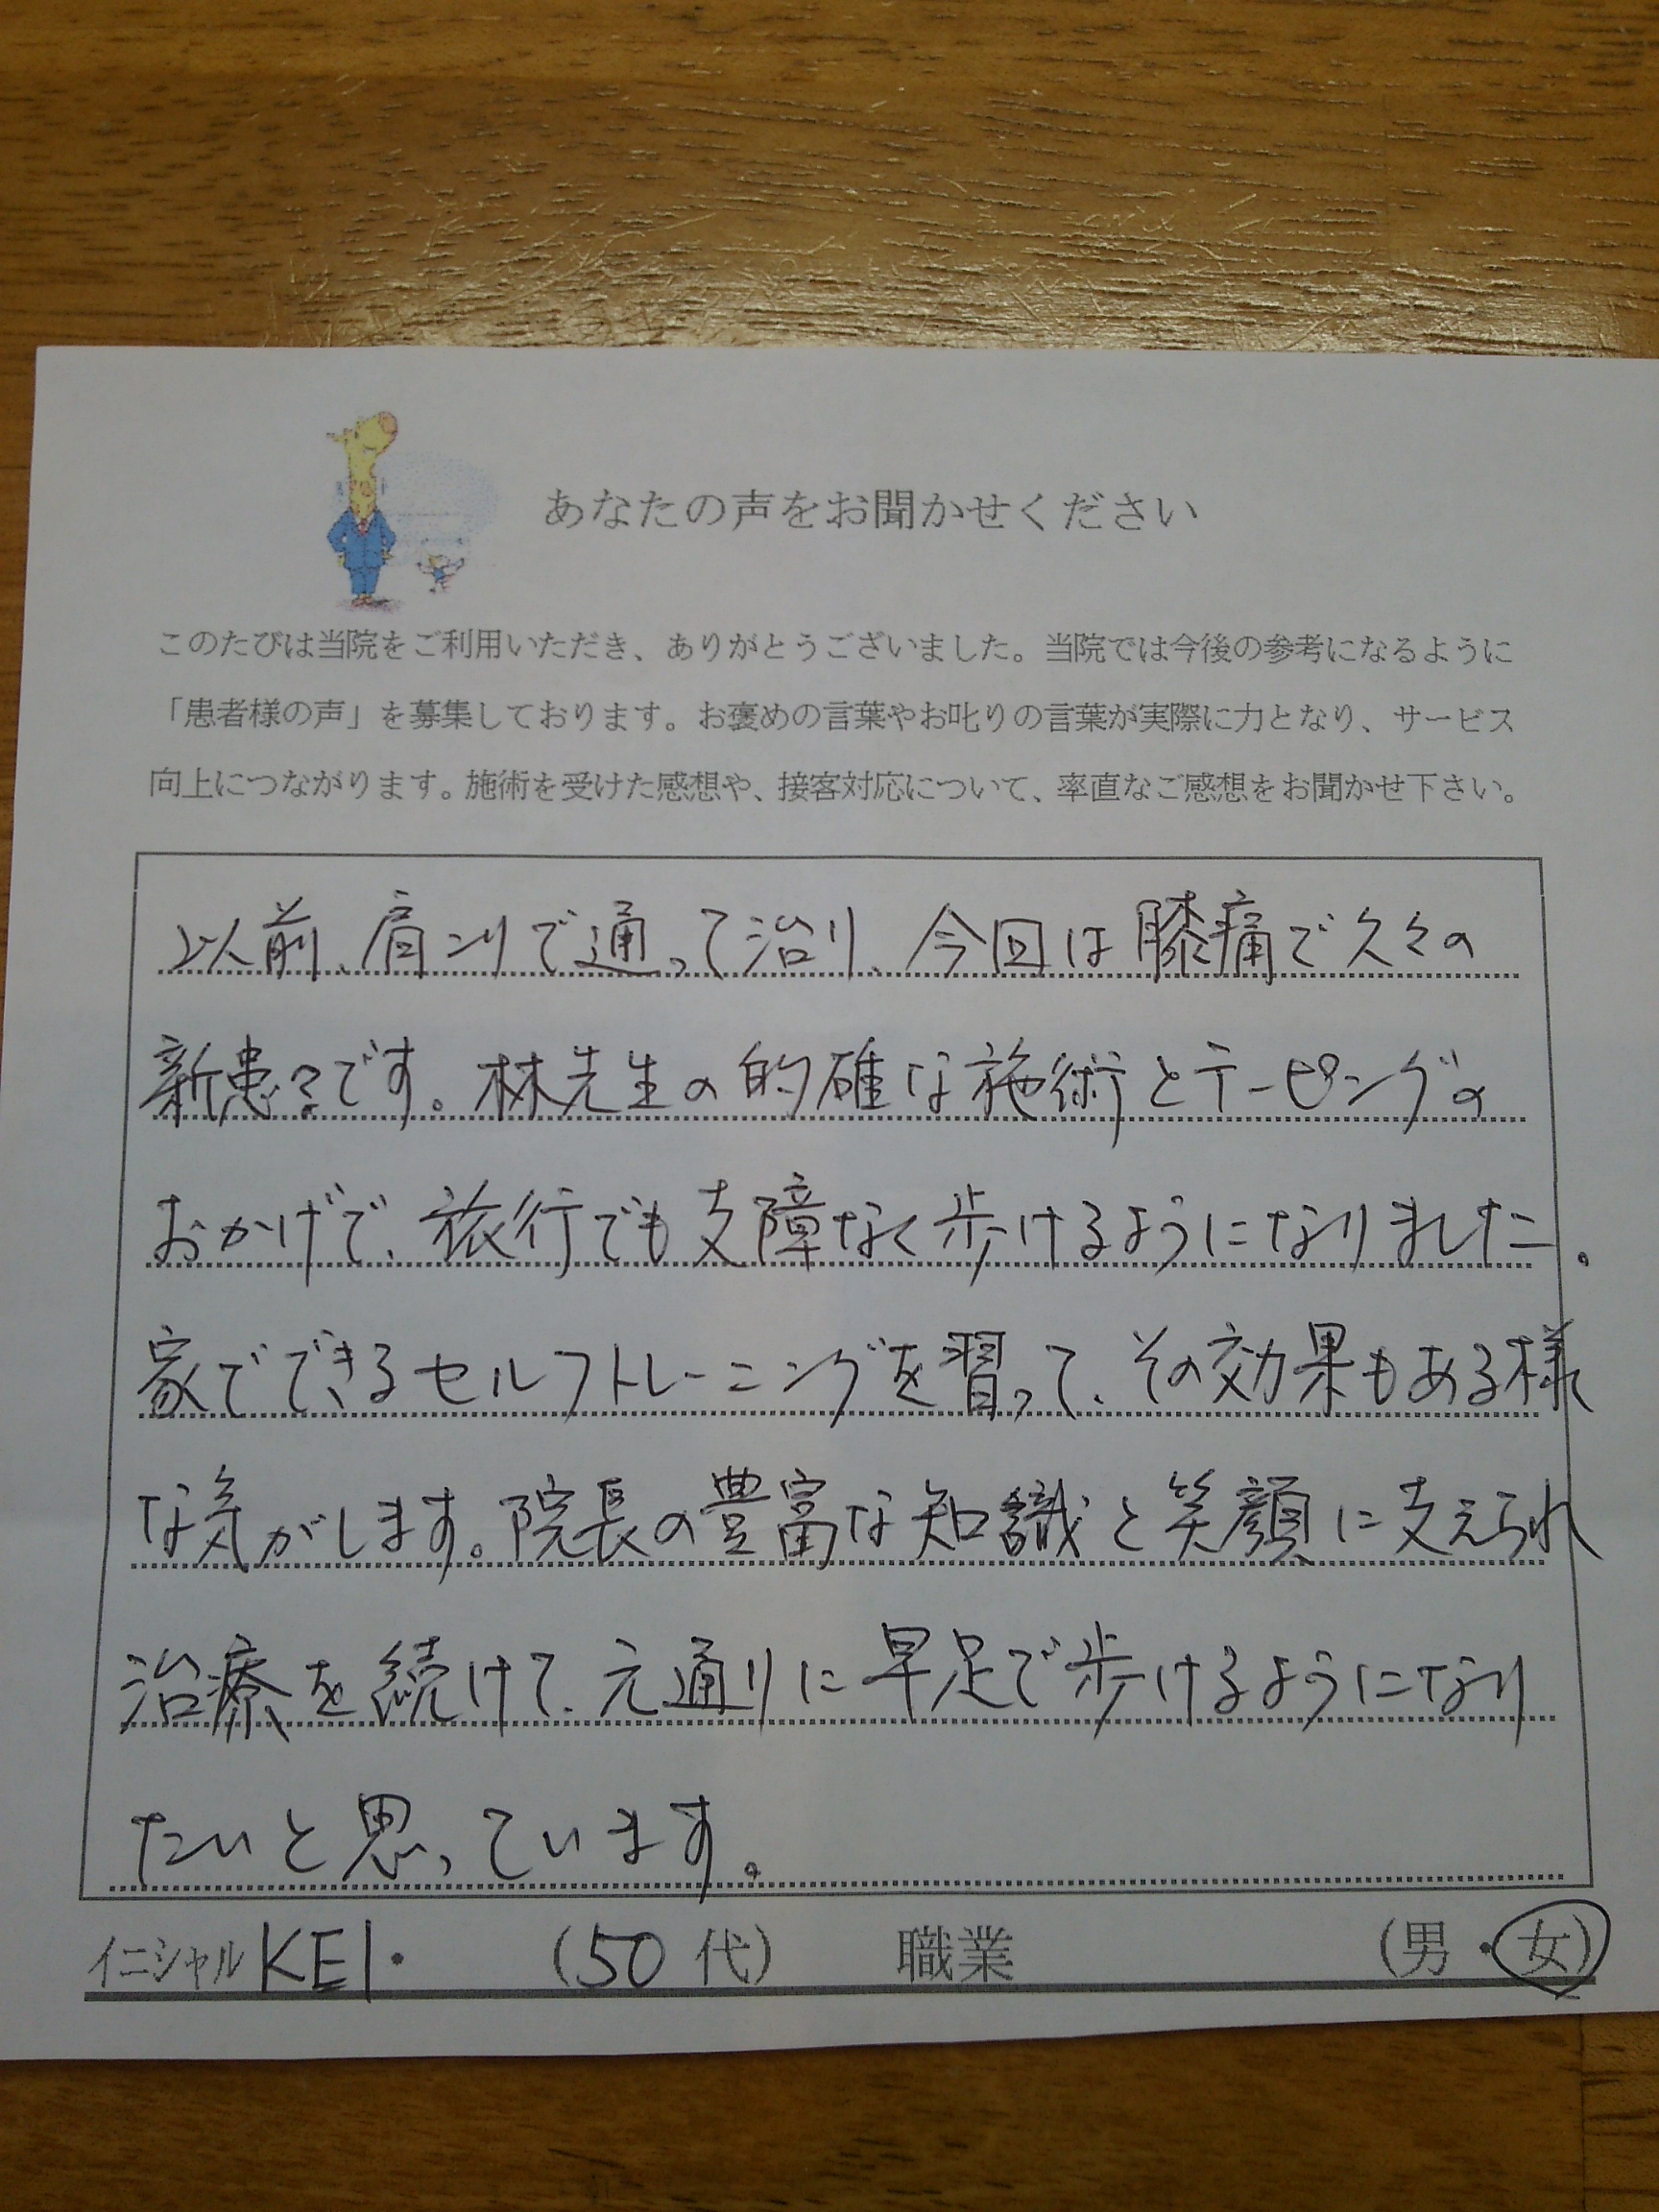 あなたの声をお聞かせください
このたびは当院をご利用いただき、ありがとうございました。当院では今後の参考になるように
「患者様の声」を募集しております。お褒めの言葉やお叱りの言葉が実際に力となり、サービス
向上につながります。施術を受けた感想や、接客対応について、率直なご感想をお聞かせ下さい。
以前、肩コリで通って治り、今回は膝痛で久々の
新患?です。林先生の的確な施術とテーピングの
おかげで、旅行でも支障なく歩けるようになりました。
家でできるセルフトレーニングを習って、その効果もある様
な気がします。院長の豊富な知識と笑顔に支えられ
治療を続けて、元通りに早足で歩けるようになり
たいと思っています。
イニシャル KEI・ (50 代) 職業 (男・女)